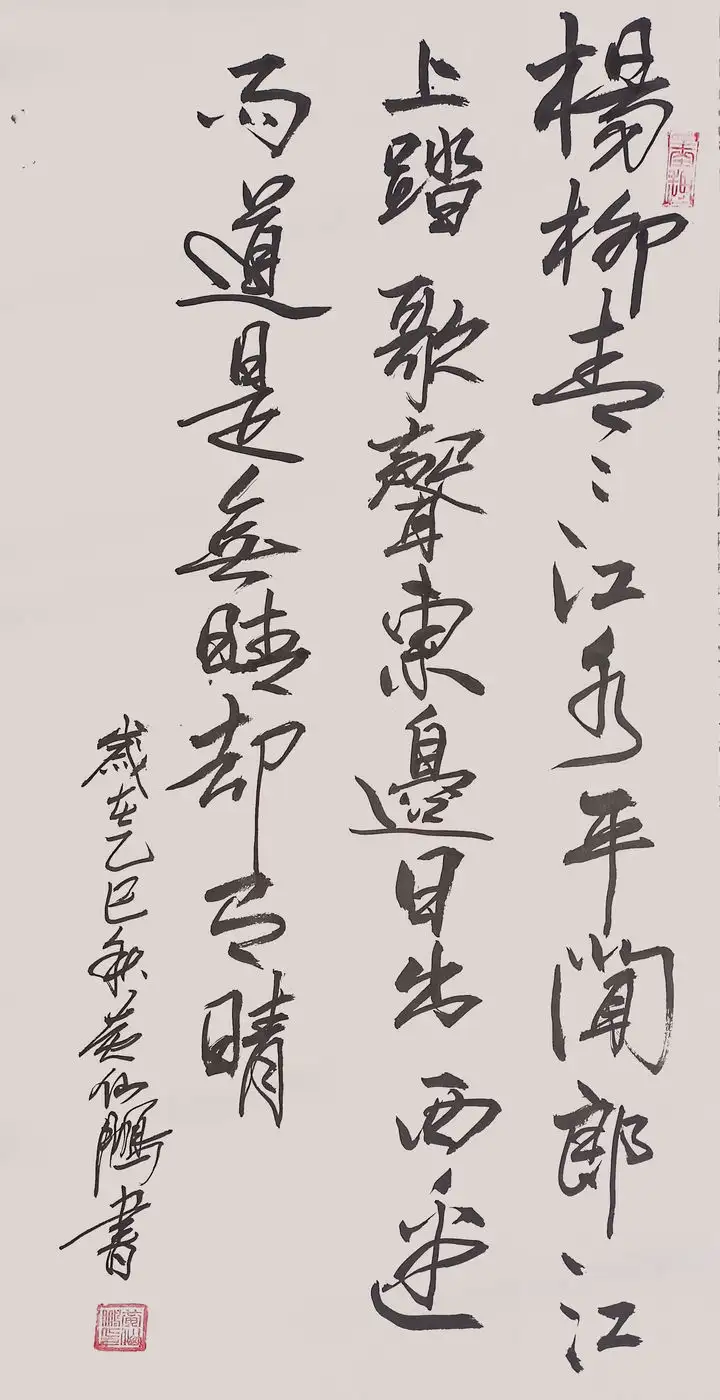 楊柳青〻江水平聞郎江
上踏歌聲東邊日出西邊
雨道是無晴却有晴
歲在乙巳秋黄仙鵬書